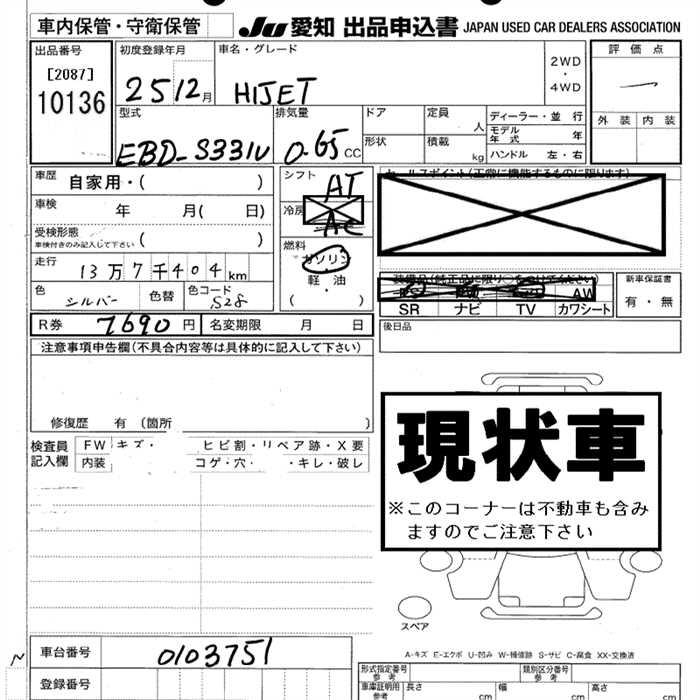 車内保管・守衛保管
JU 愛知 出品申込書 JAPAN USED CAR DEALERS ASSOCIATION
出品番号
[2087]
10136
初度登録年月
25 12月
車名・グレード
HIJET
2WD
・
4WD
評価点
一
外装 内装
型式
EBD-S331V
排気量
0.65 CC
ドア
形状
定員
人
積載
kg
ディーラー・並行
モデル 年 年
ハンドル 左・右
車歴
自家用・( )
車検
年 月( 日)
受検形態
車検付きのみ記入して下さい ( )
走行
13万7千404km
色
シルバー
色替
色コード
S28
シフト
AT
冷房
AC
燃料
ガソリン
軽油
( )
セールスポイント(正常に機能するものに限ります)
装備品(純正品に限り○をつけてください)
AW
SR ナビ TV カワシート
新車保証書
有・無
後日品
R券 7690円 名変期限 月 日
注意事項申告欄(不具合内容等は具体的に記入して下さい)
修復歴 有 (箇所 )
検査員
記入欄
FW キズ・ ヒビ割・リペア跡・X要
内装 コゲ・穴・ ・キレ・破レ
現状車
※このコーナーは不動車も含み
ますのでご注意下さい
スペア
A-キズ E-エクボ U-凹み W-補修跡 S-サビ C-腐食 XX-交換済
車台番号 0103751
登録番号
型式指定番号
参考
類別区分番号
参考
車庫証明用
参考
長さ cm 幅 cm 高さ cm